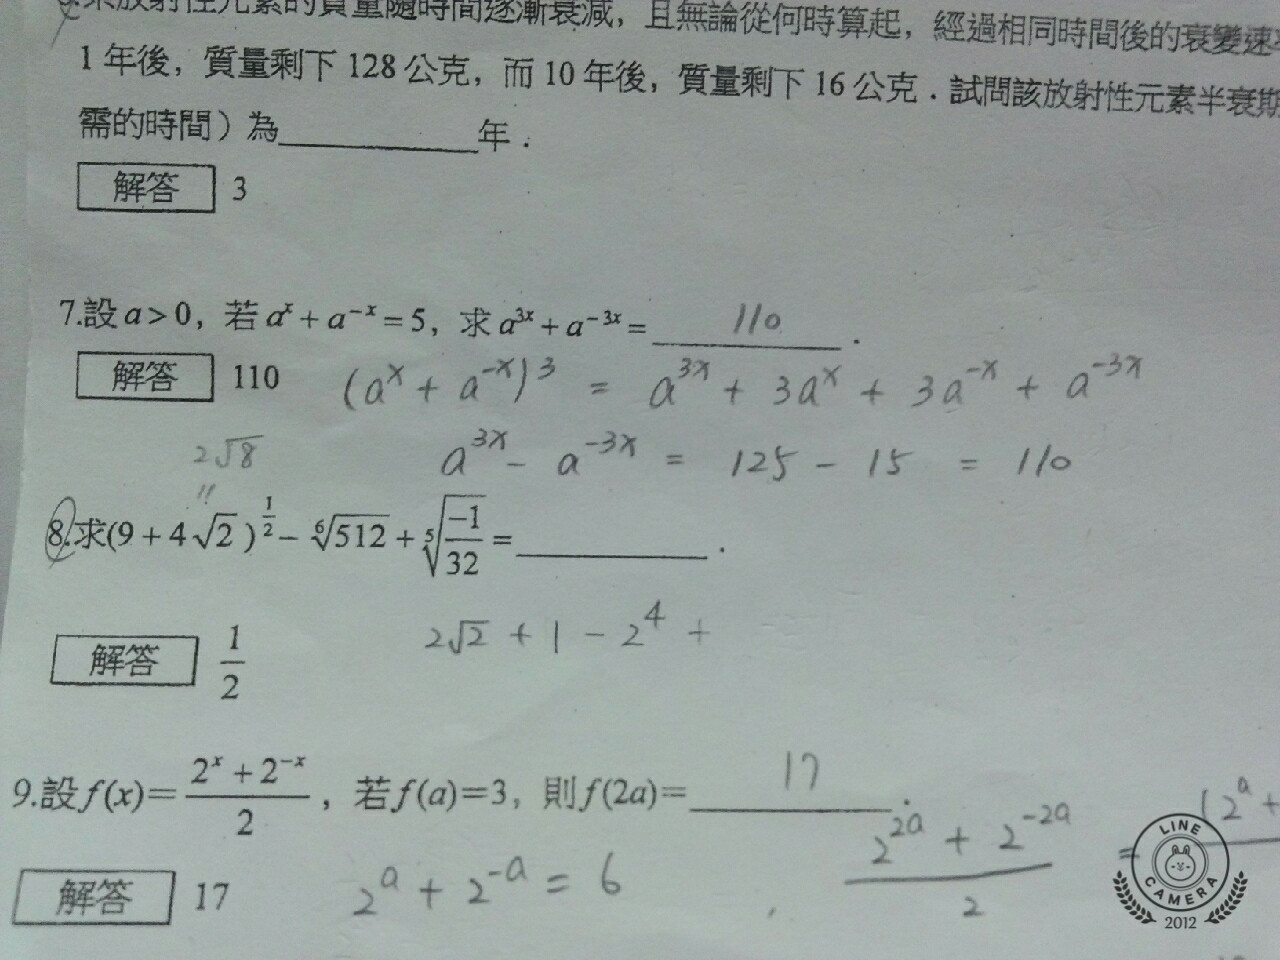 某放射性元素的質量隨時間逐漸衰減，且無論從何時算起，經過相同時間後的衰變速
1 年後，質量剩下 128 公克，而 10 年後，質量剩下 16 公克．試問該放射性元素半衰期
需的時間）為＿＿＿＿年．
解答 3
7.設 a > 0，若 aˣ + a⁻ˣ = 5，求 a³ˣ + a⁻³ˣ = 110 ．
解答 110 (aˣ + a⁻ˣ)³ = a³ˣ + 3aˣ + 3a⁻ˣ + a⁻³ˣ
2√8 a³ˣ - a⁻³ˣ = 125 - 15 = 110
"
8.求(9 + 4√2)^(1/2) − ⁶√512 + ⁵√(−1/32) = ＿＿＿＿．
2√2 + 1 - 2⁴ +
解答 1/2
9.設 f(x) = (2ˣ + 2⁻ˣ)/2，若 f(a)=3，則 f(2a)= 17 ．
(2²ᵃ + 2⁻²ᵃ)/2 = (2ᵃ +
解答 17 2ᵃ + 2⁻ᵃ = 6
LINE
CAMERA
2012